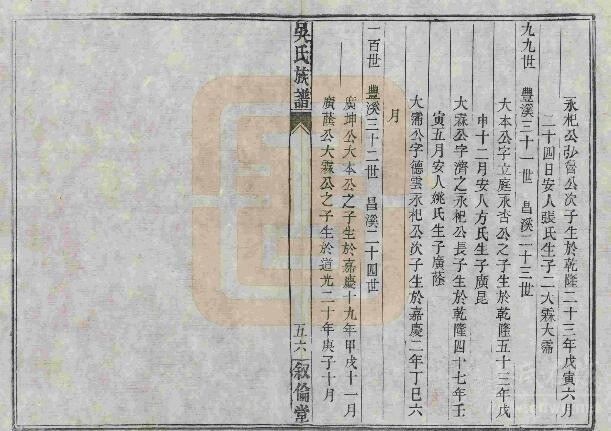 永杞公弘督公次子生於乾隆二十三年戊寅六月
二十四日安人張氏生子二大霖大霈
九九世 豐溪三十一世 昌溪二十三世
大本公字立庭永杏公之子生於乾隆五十三年戊
申十二月安人方氏生子廣昆
大霖公字濟之永杞公長子生於乾隆四十七年壬
寅五月安人姚氏生子廣蔭
大霈公字德雲永杞公次子生於嘉慶二年丁巳六
月
一百世 豐溪三十二世 昌溪二十四世
廣坤公大本公之子生於嘉慶十九年甲戌十一月
廣蔭公大霖公之子生於道光二十年庚子十月
吳氏族譜
五六
叙倫堂